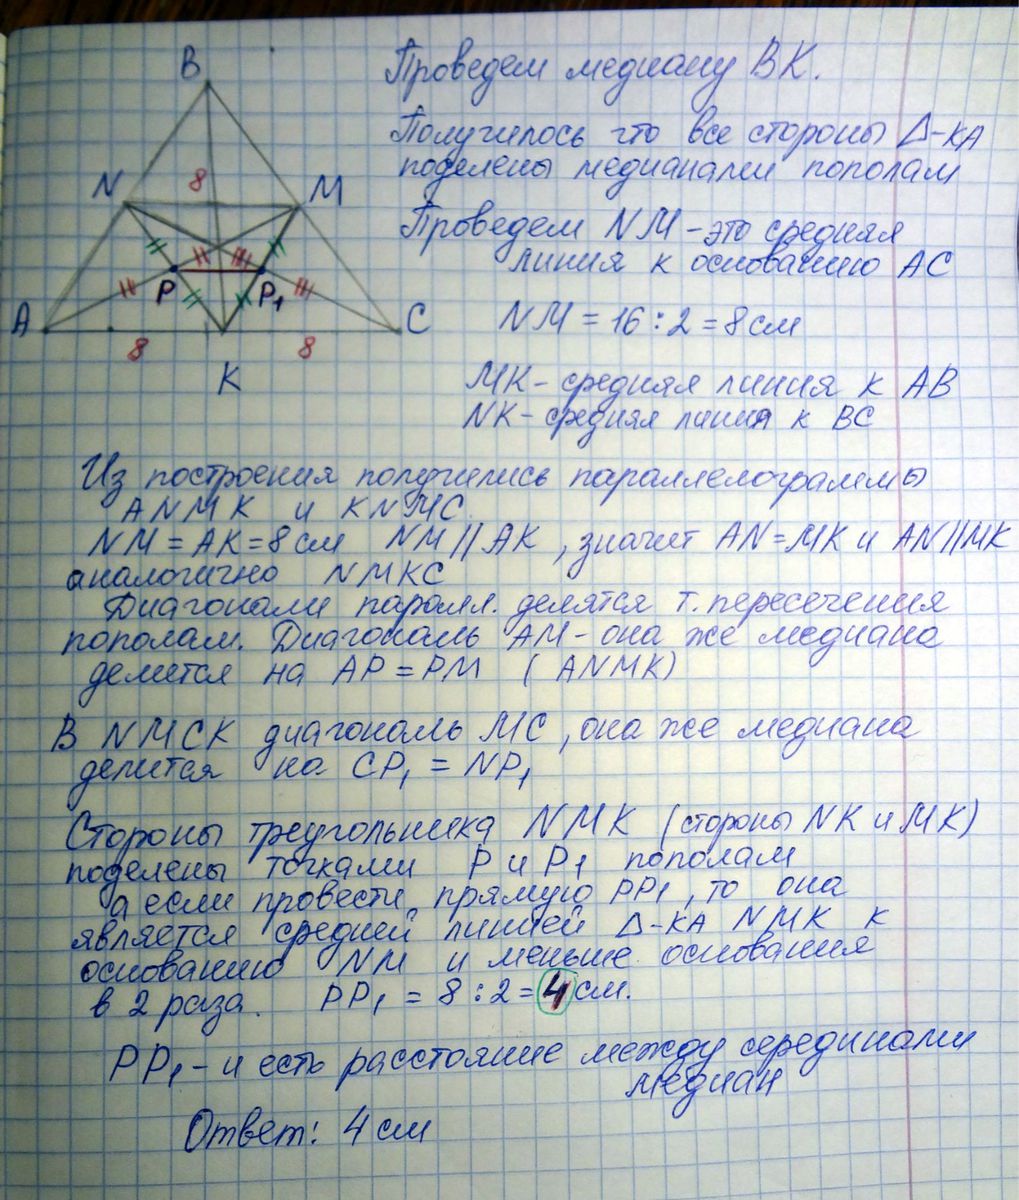 B
Проведем медиану BK.
Получилось что все стороны Δ-ка
поделены медианами пополам
N 8 M
Проведем NM - это средняя
линия к основанию AC
P P₁
A C
8 8
K
NM = 16 : 2 = 8 см
MK - средняя линия к AB
NK - средняя линия к BC
Из построения получились параллелограммы
ANMK и KNMC.
NM = AK = 8 см NM || AK, значит AN = MK и AN || MK
аналогично NMKC
Диагонали паралл. делятся т. пересечения
пополам. Диагональ AM - она же медиана
делится на AP = PM (ANMK)
В NMCK диагональ MC, она же медиана
делится на CP₁ = NP₁
Стороны треугольника NMK (стороны NK и MK)
поделены точками P и P₁ пополам
а если провести прямую PP₁, то она
является средней линией Δ-ка NMK к
основанию NM и меньше основания
в 2 раза. PP₁ = 8 : 2 = 4 см.
PP₁ - и есть расстояние между серединами
медиан
Ответ: 4 см